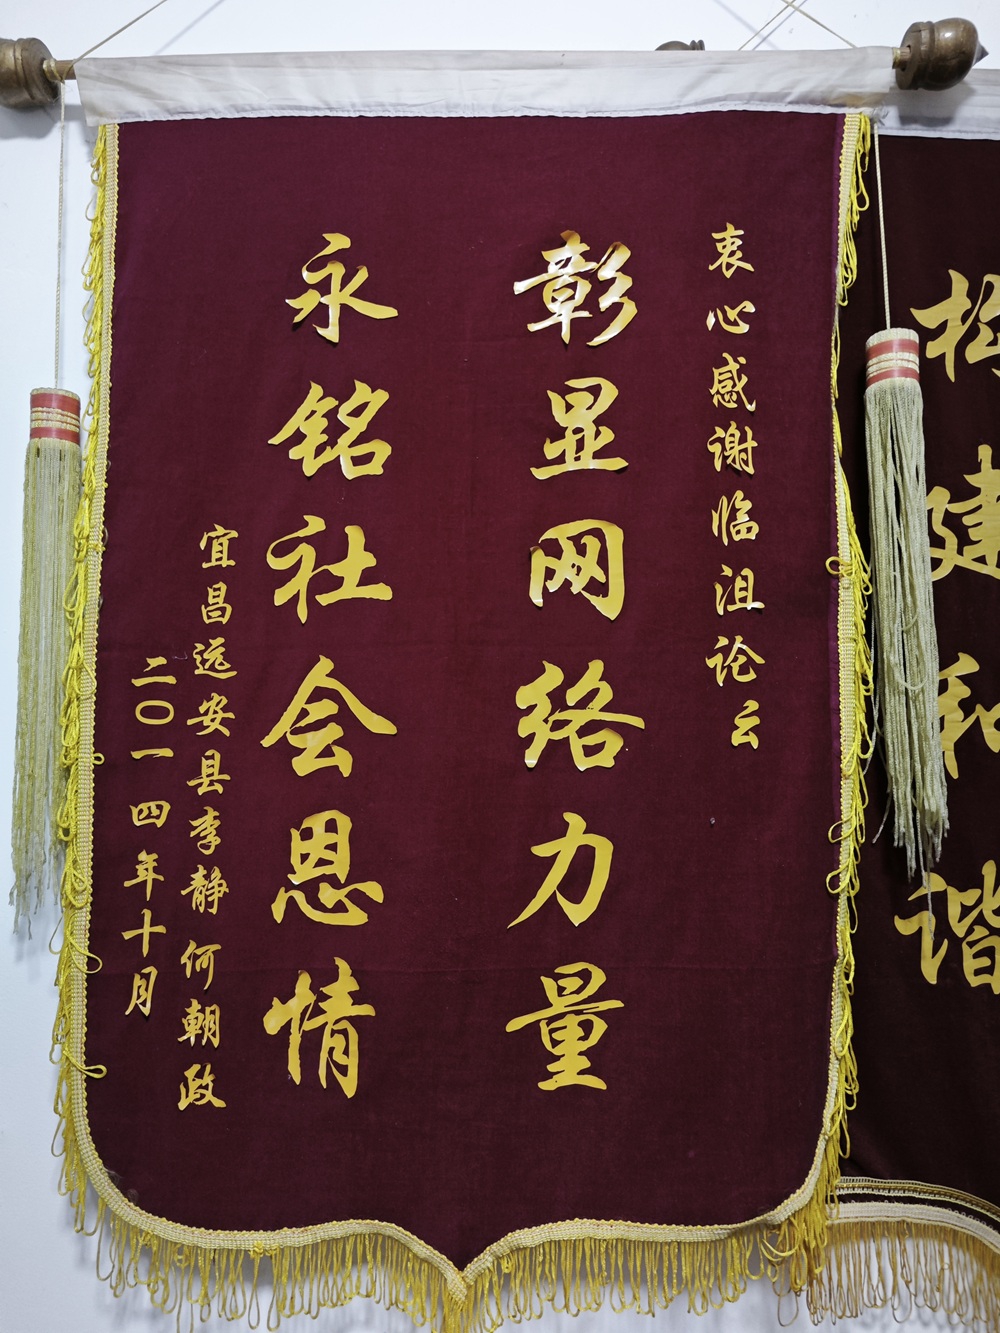 衷心感谢临沮论云
彰显网络力量
永铭社会恩情
宜昌远安县李静何朝政
二〇一四年十月
构建和谐